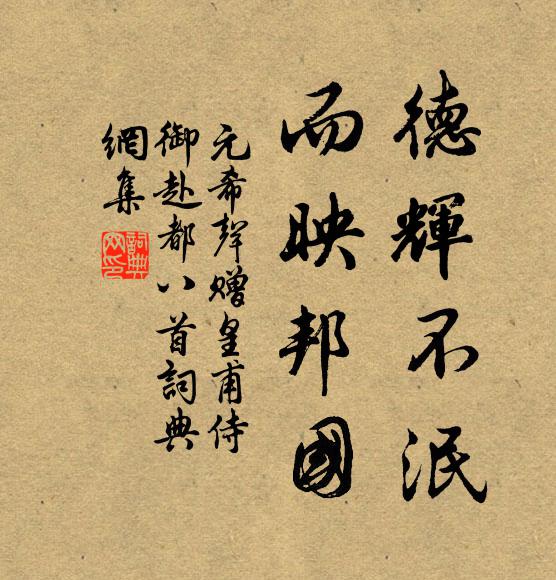 德輝不泯
而映邦國
元希聲贈皇甫侍
御赴都八首詞典
網集
詞典
网印